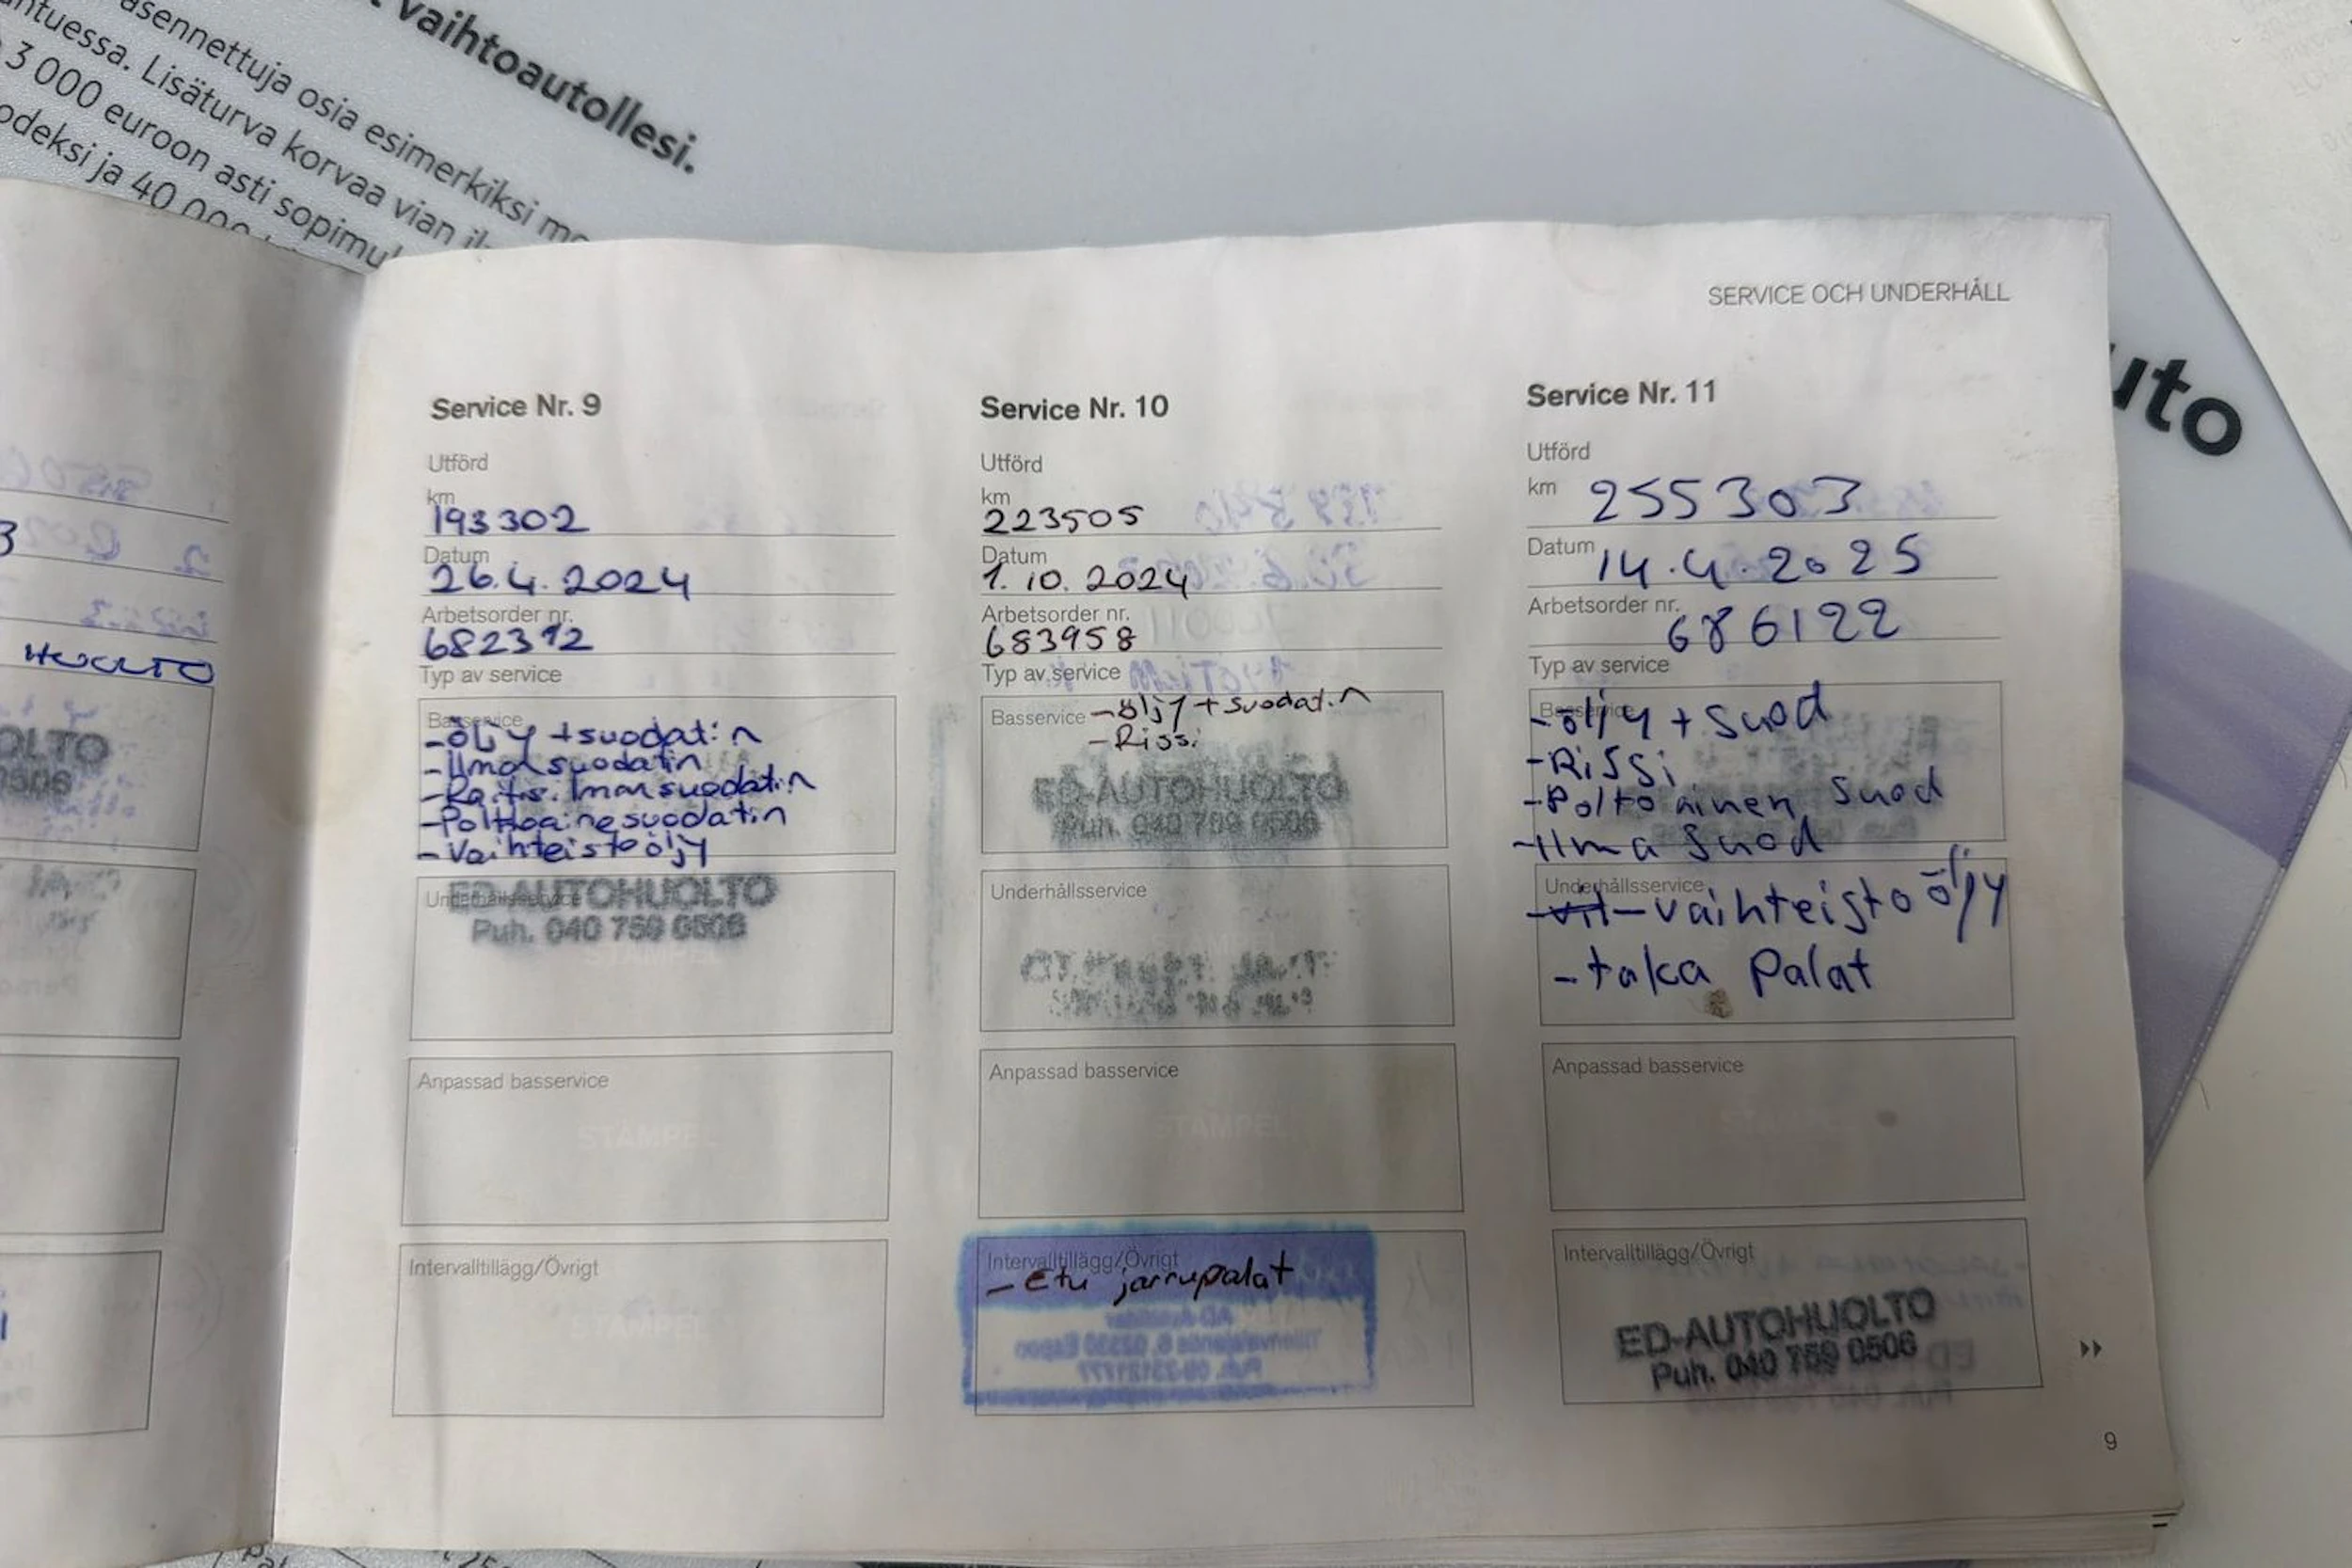 vaihtoautollesi.
asennettuja osia esimerkiksi
Lisäturva korvaa vian
3 000 euroon asti
ja 40 000
uto
SERVICE OCH UNDERHÅLL
HUOLTO
OLTO
0506
Service Nr. 9
Utförd
km
193302
Datum
26.4.2024
Arbetsorder nr.
682312
Typ av service
Basservice
-öljy +suodatin
-Ilmansuodatin
-Raitis.Ilmansuodatin
-Polttoainesuodatin
-Vaihteistoöljy
Underhållsservice
ED-AUTOHUOLTO
Puh. 040 759 0506
STÄMPEL
Anpassad basservice
STÄMPEL
Intervalltillägg/Övrigt
STÄMPEL
Service Nr. 10
Utförd
km
223505
Datum
1.10.2024
Arbetsorder nr.
683958
Typ av service
Basservice -öljy +suodatin
-Rissi
ED-AUTOHUOLTO
Puh. 040 759 0506
Underhållsservice
Anpassad basservice
STÄMPEL
Intervalltillägg/Övrigt
-Etu jarrupalat
Service Nr. 11
Utförd
km 255303
Datum 14.4.2025
Arbetsorder nr. 686122
Typ av service
Basservice
-öljy + suod
-Rissi
-Polto ainen suod
-Ilma suod
Underhållsservice
-vaihteisto öljy
-taka Palat
Anpassad basservice
STÄMPEL
Intervalltillägg/Övrigt
ED-AUTOHUOLTO
Puh. 040 759 0506
9